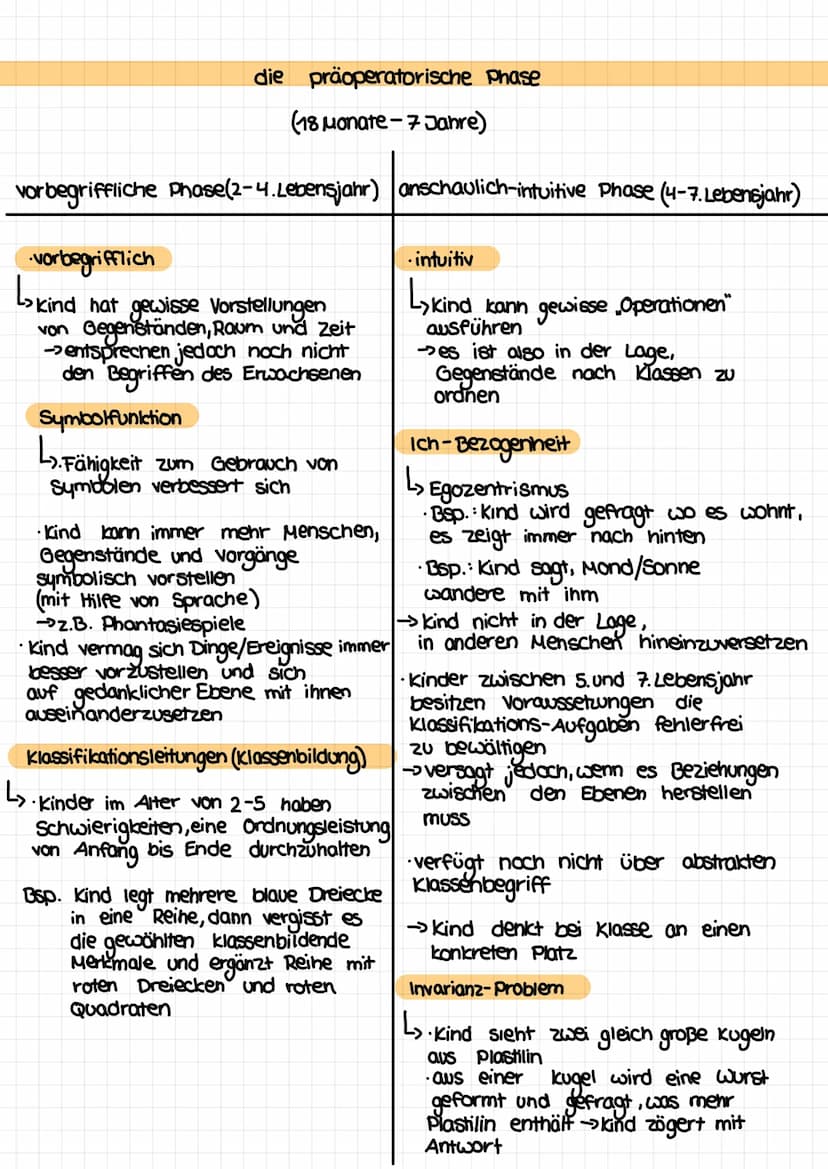 die präoperatorische Phase
(18 Monate - 7 Jahre)
vorbegriffliche Phase (2-4. Lebensjahr)
·vorbegrifflich
↳ Kind hat gewisse Vorstellungen
von Gegenständen, Raum und Zeit
→ entsprechen jedoch noch nicht
den Begriffen des Erwachsenen
Symbolfunktion
↳ ·Fähigkeit zum Gebrauch von
Symbolen verbessert sich
·Kind kann immer mehr Menschen,
Gegenstände und Vorgänge
symbolisch vorstellen
(mit Hilfe von Sprache)
→ z.B. Phantasiespiele
·Kind vermag sich Dinge/Ereignisse immer
besser vorzustellen und sich
auf gedanklicher Ebene mit ihnen
auseinanderzusetzen
Klassifikationsleitungen (Klassenbildung)
↳ ·Kinder im Alter von 2-5 haben
Schwierigkeiten, eine Ordnungsleistung
von Anfang bis Ende durchzuhalten
Bsp. Kind legt mehrere blaue Dreiecke
in eine Reihe, dann vergisst es
die gewählten klassenbildende
Merkmale und ergänzt Reihe mit
roten Dreiecken und roten
Quadraten
anschaulich-intuitive Phase (4-7. Lebensjahr)
·intuitiv
↳ Kind kann gewisse „Operationen"
ausführen
→ es ist also in der Lage,
Gegenstände nach Klassen zu
ordnen
Ich-Bezogenheit
↳ Egozentrismus
·Bsp.: Kind wird gefragt wo es wohnt,
es zeigt immer nach hinten
·Bsp.: Kind sagt, Mond/Sonne
wandere mit ihm
→ Kind nicht in der Lage,
in anderen Menschen hineinzuversetzen
·Kinder zwischen 5. und 7. Lebensjahr
besitzen Voraussetzungen die
Klassifikations-Aufgaben fehlerfrei
zu bewältigen
→ versagt jedoch, wenn es Beziehungen
zwischen den Ebenen herstellen
muss
·verfügt noch nicht über abstrakten
Klassenbegriff
→ Kind denkt bei Klasse an einen
konkreten Platz
Invarianz-Problem
↳ ·Kind sieht zwei gleich große Kugeln
aus Plastilin
·aus einer Kugel wird eine Wurst
geformt und gefragt, was mehr
Plastilin enthält → Kind zögert mit
Antwort